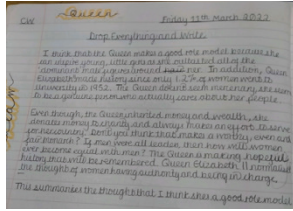 CW Queen Friday 11th March 2022
Drop Everything and Write
I think that the Queen make a good role model because she
can inspire young little girls as she outlasted all of the
dominant male figures around her. In addition, Queen
Elizabeth made history since only 1.2% of women went to
university in 1952. The Queen doesn't seem mercenary, she seems
to be a genuine person who actually cares about her people.
Even though, the Queen inherited money and wealth, she
donates money to charity and always makes an effort to serve
for her country. Don't you think that makes a worthy, even and
fair monarch? If men were all leaders, then how will women
ever become equal with men? The Queen is making hopeful
history that will be remembered. Queen Elizabeth II normalised
the thought of women having authority and being in charge.
This summarises the thoughts that I think she's a good role model